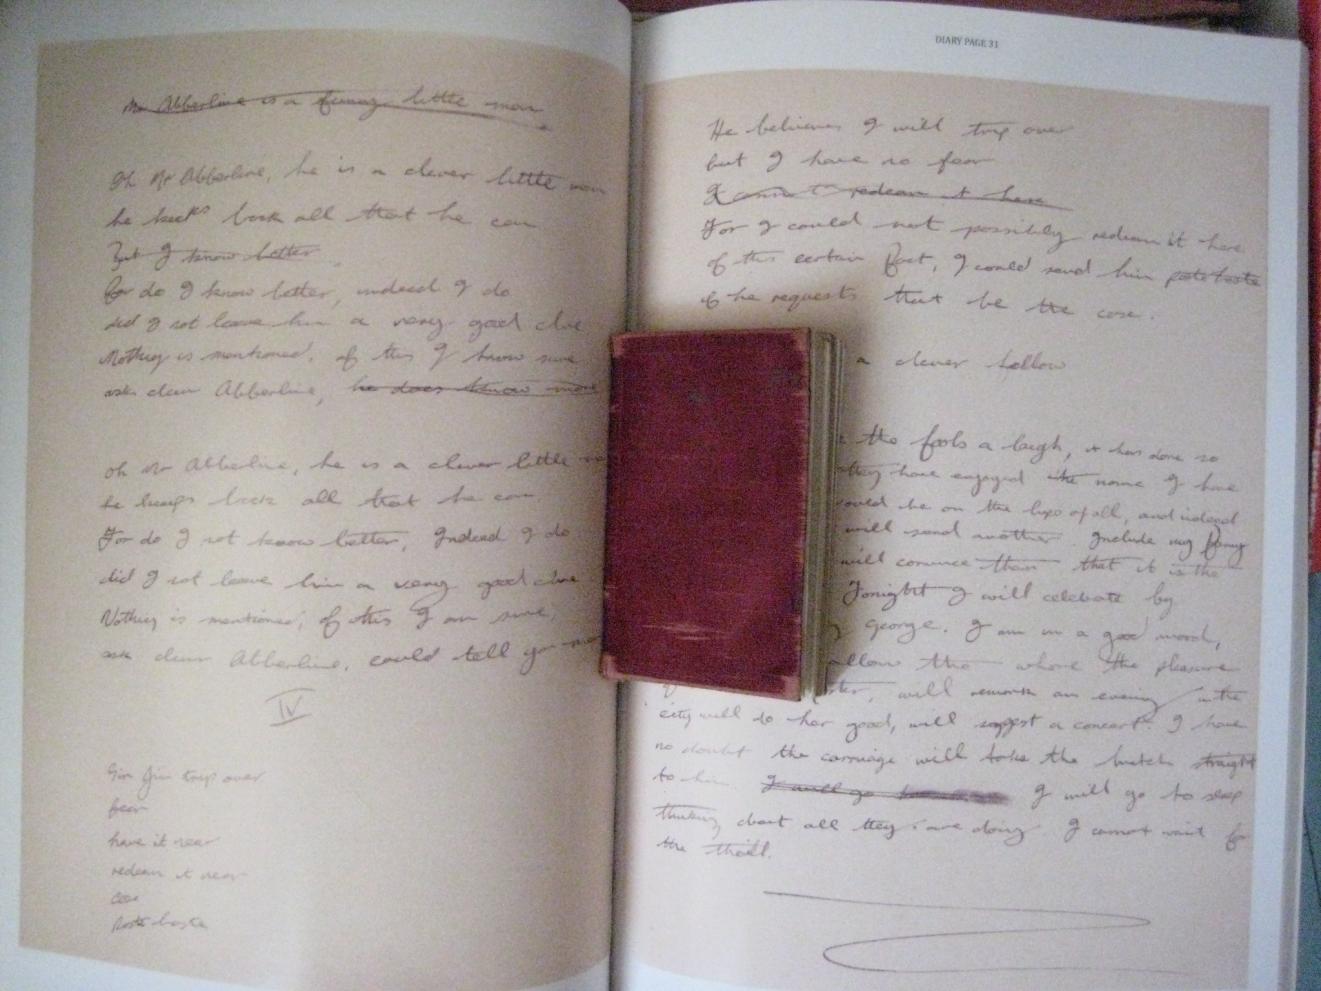 Mr Abberline is a funny little man
Oh Mr Abberline, he is a clever little man
he keeps back all that he can
But I know better
for do I know better, indeed I do
did I not leave him a very good clue
Nothing is mentioned, of this I know sure
ask clever Abberline, he does know more
Oh Mr Abberline, he is a clever little
he keeps back all that he can
For do I not know better, Indeed I do
did I not leave him a very good clue
Nothing is mentioned, of this I am sure,
ask clever Abberline, could tell you more
IV
trip over
fear
have it near
redeem it near
case
poste haste
DIARY PAGE 31
He believes I will trip over
but I have no fear
I cannot redeem it here
For I could not possibly redeem it here
of this certain fact, I could send him poste haste
if he requests that be the case.
a clever fellow
the fools a laugh, it has done so
they have engaged the name I have
would be on the lips of all, and indeed
will send another. Include my funny
will convince them that it is the
Tonight I will celebrate by
George. I am in a good mood,
allow the whore the pleasure
will remark an evening in the
city will do her good, will suggest a concert. I have
no doubt the carriage will take the bitch straight
to him. I will go I will go to sleep
thinking about all they are doing. I cannot wait for
the thrill.